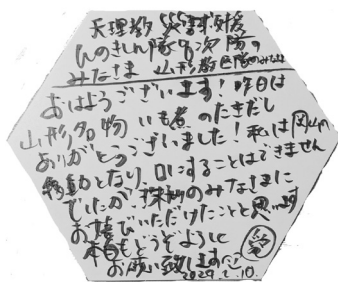 天理教 災害救援
ひのきしん隊 8次隊の
みなさま 山形教区隊のみなさま
おはようございます！昨日は
山形名物 いも煮のたきだし
ありがとうございました！私は岡山の
移動となり、口にすることはできません
でしたが 珠洲のみなさまに
お喜びいただけたことと思います
本日もどうぞよろしく
お願い致します
愛
2024. 10.